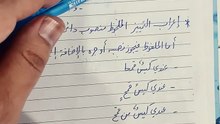 * إعراب التمييز الملفوظ منصوب دائما
أن الملفوظ يجوز نصبه أو جره بالإضافة أو
- عندي كيسٌ قمحًا
- عندي كيسُ قمحٍ
- عندي كيسٌ من قمح